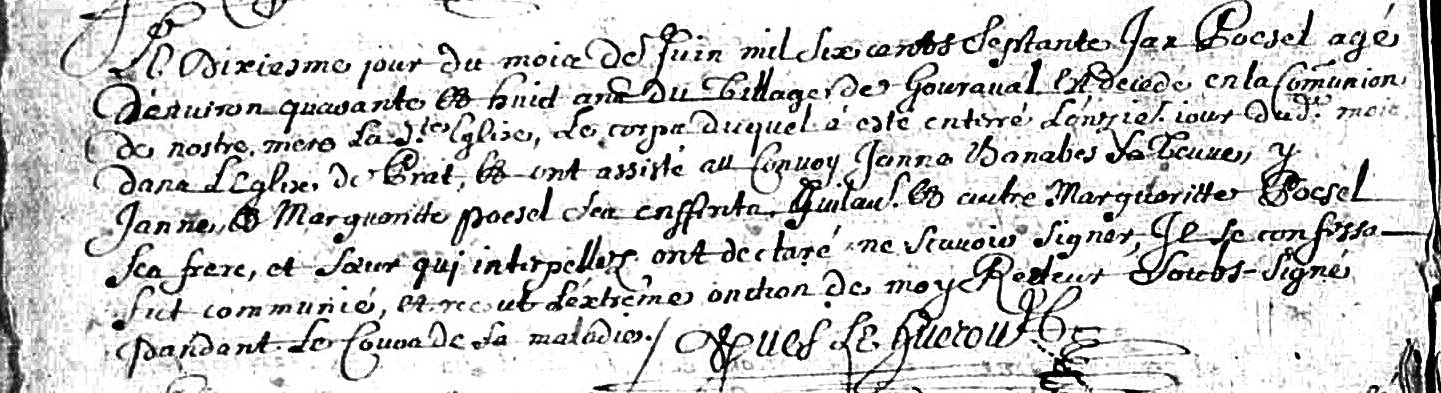 Le Dixiesme jour du mois de Juin mil six cents septante Jan Poesel agé
d'enuiron quarante et huid ans du Village de Gouraual est decedé en la Comunion
de nostre mere la Ste Eglise, le corps duquel à esté enterré l'onzie. iour dud. mois
dans L'Eglise de Prat, et ont assisté au Conuoy Janne sa Veuue, y
Janne, et Margueritte poesel ses enffants, Guilau. et autre Margueritte Poesel
ses frere, et sœur quj interpellez ont declaré ne scauoir signer, Jl se confessa
fut communié, et receut l'extrême onction de moy Recteur soubs-signé
pandant le Cours de sa maladie./ Yues Le Guerou